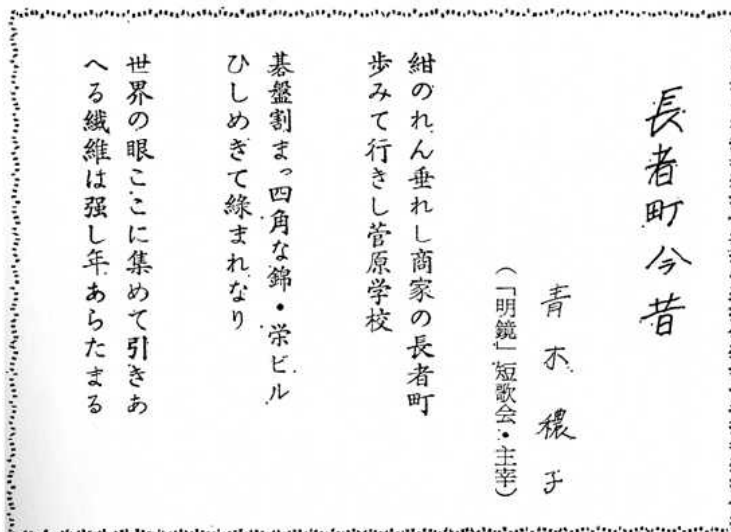 長者町今昔
青木穠子
(「明鏡」短歌会・主宰)
紺のれん垂れし商家の長者町
歩みて行きし菅原学校
碁盤割まっ四角な錦・栄ビル
ひしめぎて緑まれなり
世界の眼ここに集めて引きあ
へる繊維は强し年あらたまる